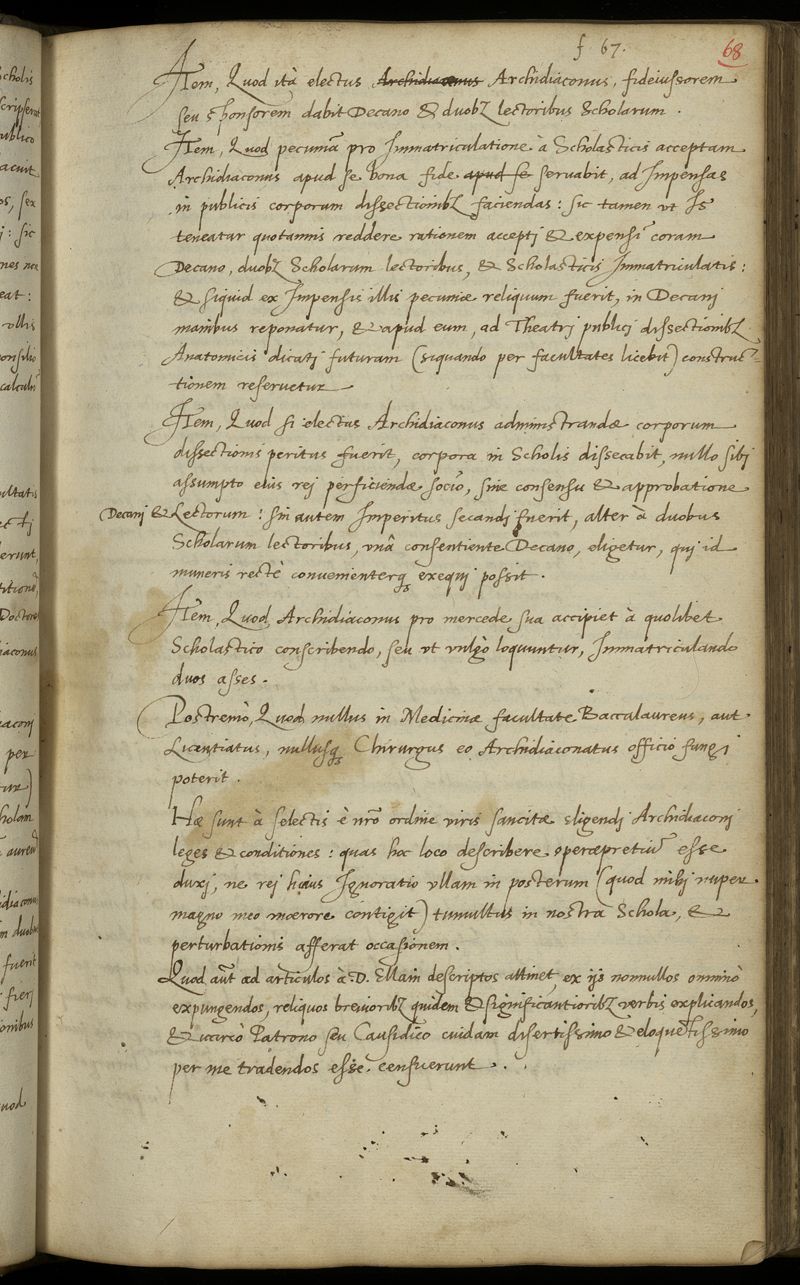 f. 67. 68
Item, Quod ità electus Archidiaconus Archidiaconus, fideiussorem
seu sponsorem dabit Decano & duobꝫ lectoribus Scholarum.
Item, Quod pecuniā pro Immatriculatione à Scholasticis acceptam
Archidiaconus apud se bona fide apud se seruabit, ad Impensas
in publicis corporum dissectionibꝫ faciendas: sic tamen vt Is
teneatur quotannis reddere rationem accepti & expensi coram
Decano, duobꝫ Scholarum lectoribus, & Scholasticis Immatriculatis:
& siquid ex Impensis illis pecuniæ reliquum fuerit, in Decani
manibus reponatur, & apud eum, ad Theatri publici dissectionibꝫ
Anatomicis dicati futuram (siquando per facultates licebit) construc-
tionem reseruetur
Item, Quod si electus Archidiaconus administrandæ corporum
dissectionis peritus fuerit, corpora in Scholis dissecabit, nullo sibi
assumpto eius rei perficiendæ socio, sine consensu & approbatione
Decani & Lectorum: sin autem Imperitus secandi fuerit, alter à duobus
Scholarum lectoribus, vnâ consentiente Decano, eligetur, qui id
muneris rectè conuenienterqꝫ exequi possit.
Item, Quod Archidiaconus pro mercede sua accipiet à quolibet
Scholastico conscribendo, seu vt vulgò loquuntur, Immatriculando
duos asses.
Postremò, Quod nullus in Medicinæ facultate Baccalaureus, aut
Licentiatus, nullusqꝫ Chirurgus eo Archidiaconatus officio fungi
poterit.
Hæ sunt à selectis è nr̄o ordine viris sancitæ eligendi Archidiaconi
leges & conditiones: quas hoc loco describere operæpretiū esse
duxi, ne rei huius Ignoratio vllam in posterum (quod mihi nuper
magno meo mœrore contigit) tumultus in nostra Schola, &
perturbationis afferat occasionem.
Quod aūt ad articulos à D. Ellain descriptos attinet, ex ijs nonnullos omninò
expungendos, reliquos breuioribꝫ quidem & significantioribꝫ verbis explicandos,
& Patrono seu Causidico cuidam disertissimo & eloquētissimo
per me tradendos esse censuerunt.